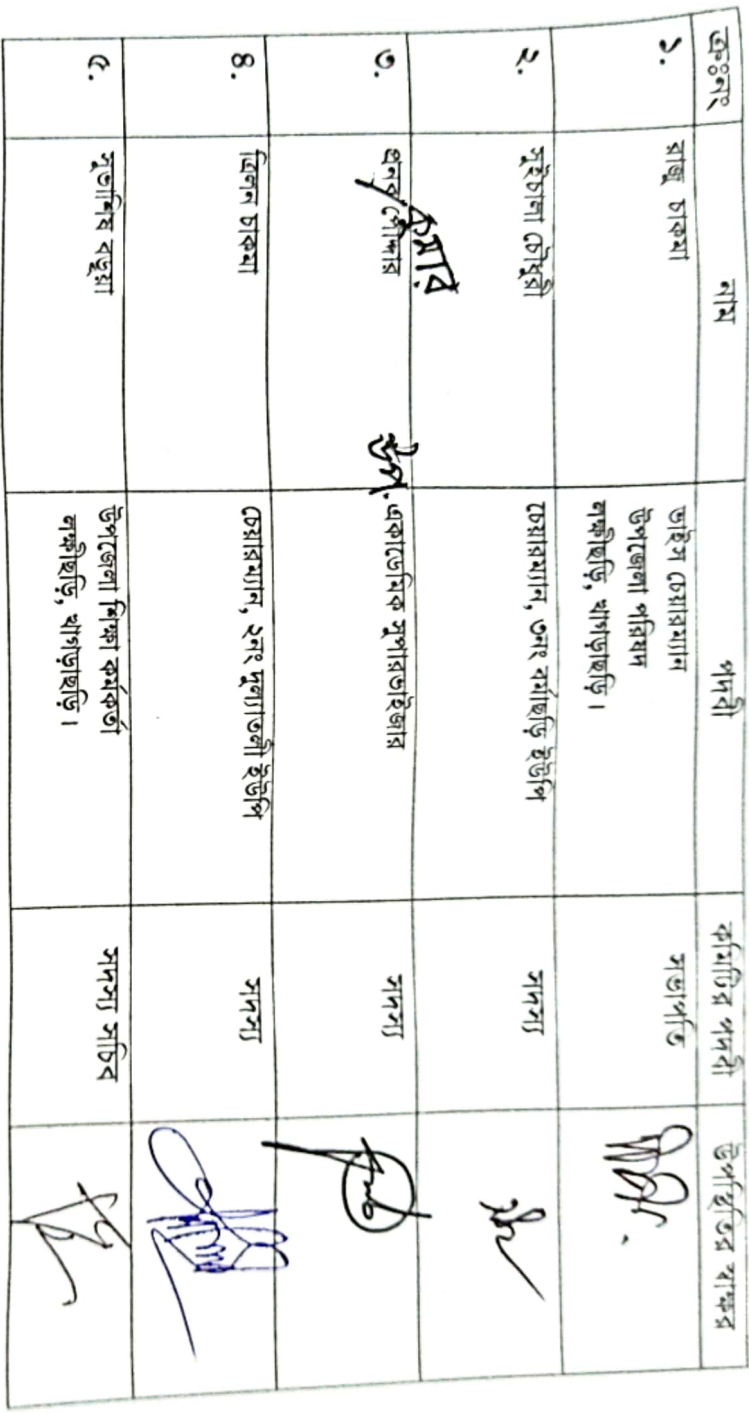 ক্রঃনং নাম পদবী কমিটির পদবী উপস্থিতির স্বাক্ষর
১. রাজু চাকমা ভাইস চেয়ারম্যান সভাপতি
উপজেলা পরিষদ
লক্ষীছড়ি, খাগড়াছড়ি।
২. সুইচালা চৌধুরী চেয়ারম্যান, ৩নং বর্মাছড়ি ইউপি সদস্য
৩. প্রনব কুমার পোদ্দার একাডেমিক সুপারভাইজার সদস্য
৪. ত্রিলন চাকমা চেয়ারম্যান, ২নং দুল্যাতলী ইউপি সদস্য
৫. সুভাশিষ বড়ুয়া উপজেলা শিক্ষা কর্মকর্তা সদস্য সচিব
লক্ষীছড়ি, খাগড়াছড়ি।